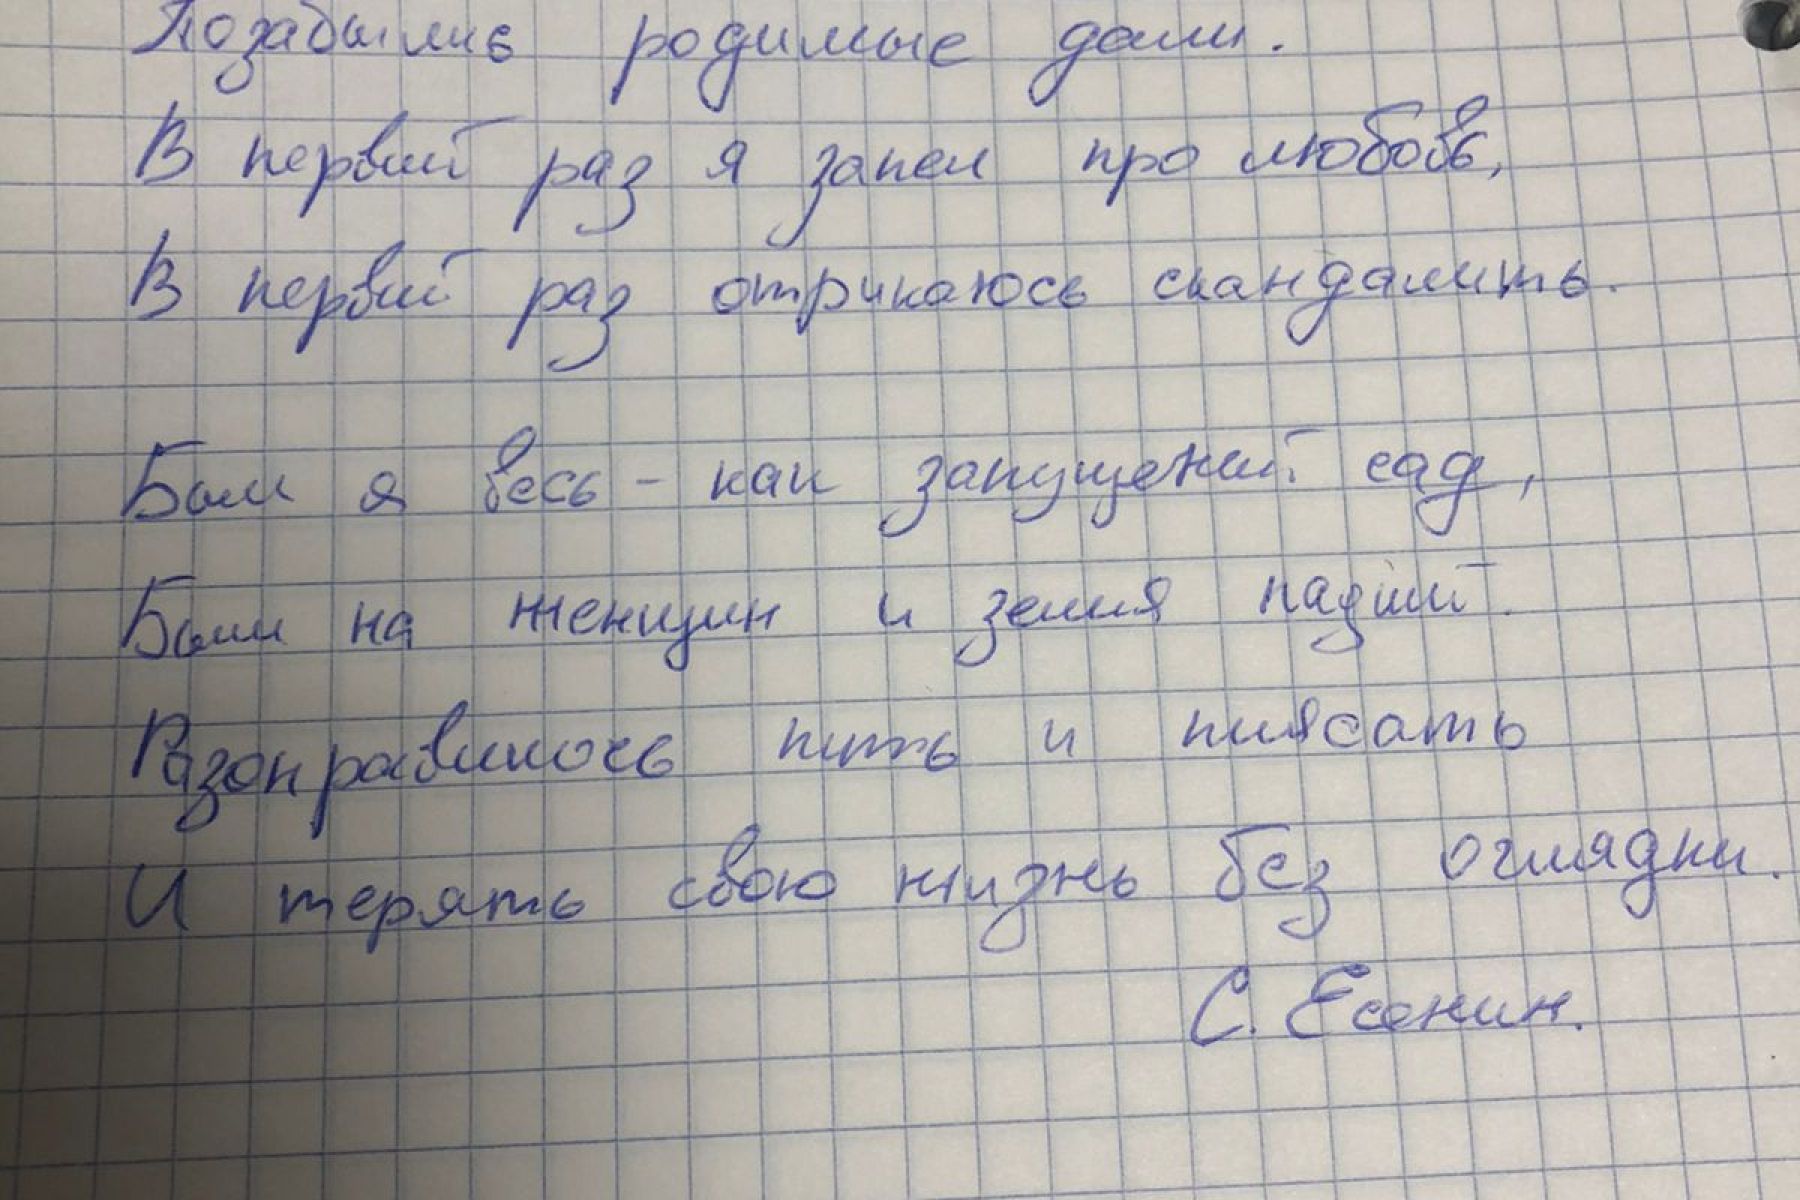 Позабылись родимые дали.
В первый раз я запел про любовь,
В первый раз отрикаюсь скандалить.
Был я весь - как запущеный сад,
Был на женщин и зелия падший.
Разонравилось пить и плясать
И терять свою жизнь без оглядки.
С. Есенин.